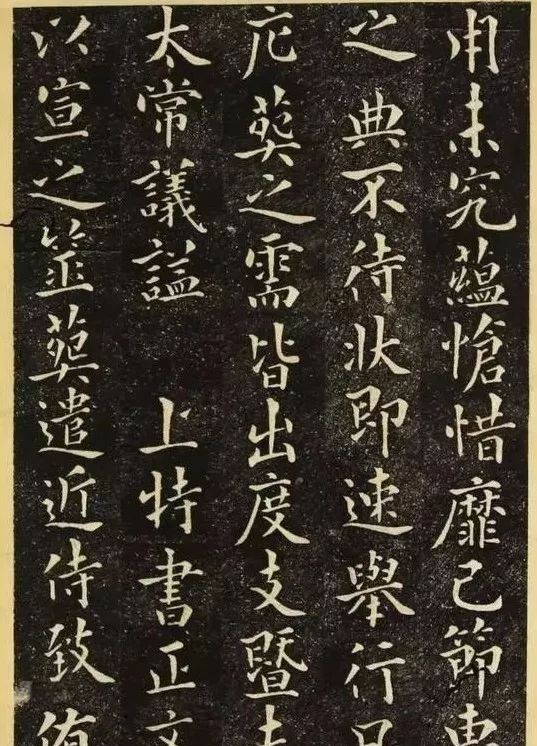 用未究蘊愴惜靡已節惠
之典不待狀即速舉行
庀葬之需皆出度支暨
太常議謚 上特書正文
以宣之筮葬遣近侍致侑